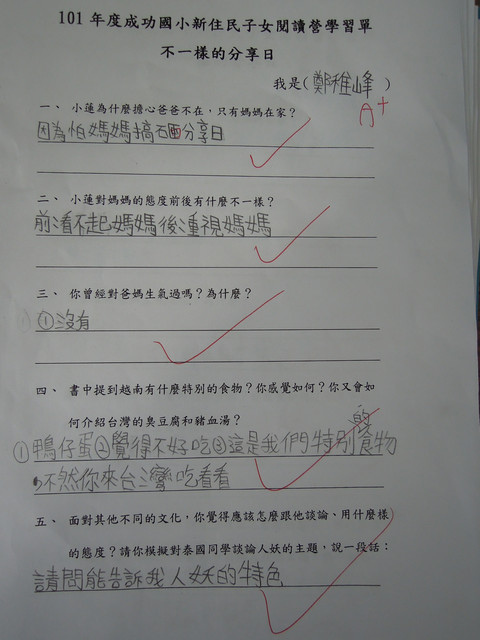 101 年度成功國小新住民子女閱讀營學習單
不一樣的分享日
我是( 鄭稚峰 )
A+
一、 小蓮為什麼擔心爸爸不在，只有媽媽在家？
因為怕媽媽搞砸分享日
二、 小蓮對媽媽的態度前後有什麼不一樣？
前看不起媽媽後重視媽媽
三、 你曾經對爸媽生氣過嗎？為什麼？
①沒有
四、 書中提到越南有什麼特別的食物？你感覺如何？你又會如
何介紹台灣的臭豆腐和豬血湯？
①鴨仔蛋②覺得不好吃③這是我們特別的食物
，不然你來台灣吃看看
五、 面對其他不同的文化，你覺得應該怎麼跟他談論、用什麼樣
的態度？請你模擬對泰國同學談論人妖的主題，說一段話：
請問能告訴我人妖的特色